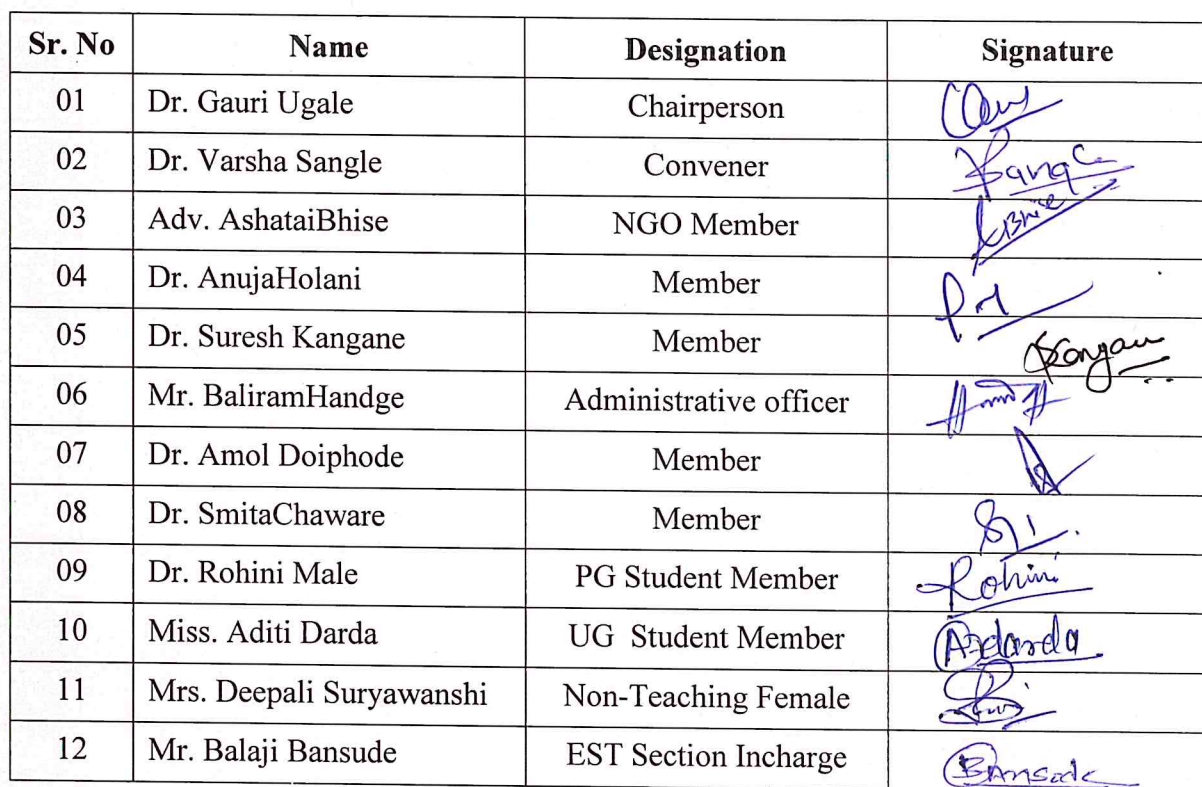 Sr. No Name Designation Signature
01 Dr. Gauri Ugale Chairperson
02 Dr. Varsha Sangle Convener
03 Adv. AshataiBhise NGO Member ABhise
04 Dr. AnujaHolani Member
05 Dr. Suresh Kangane Member
06 Mr. BaliramHandge Administrative officer
07 Dr. Amol Doiphode Member
08 Dr. SmitaChaware Member
09 Dr. Rohini Male PG Student Member Rohini
10 Miss. Aditi Darda UG Student Member
11 Mrs. Deepali Suryawanshi Non-Teaching Female
12 Mr. Balaji Bansude EST Section Incharge BAnsode